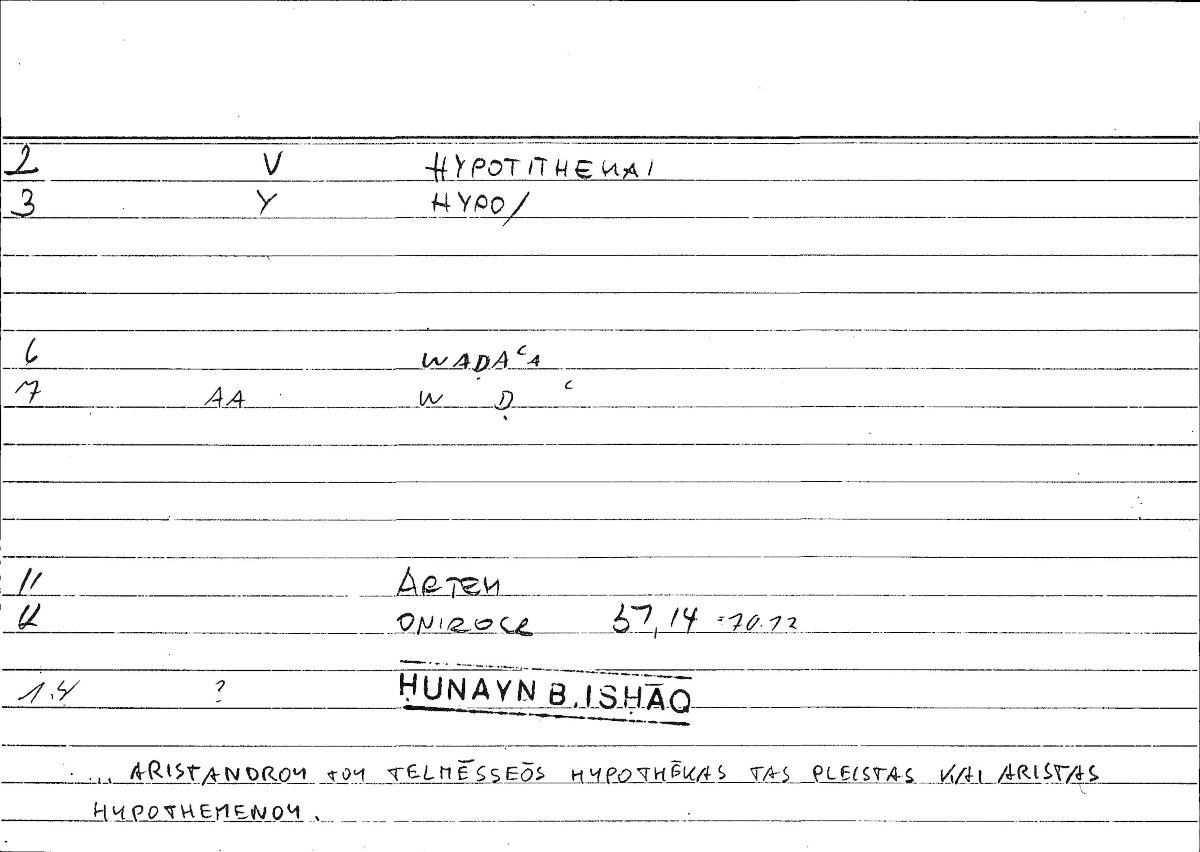 2 V HYPOTITHENAI
3 Y HYPO/
6 WAḌAʿA
7 AA W Ḍ ʿ
11 ARTEM
12 ONIROCR 37,14 =70.12
14 ? ḤUNAYN B. ISḤĀQ
... ARISTANDROY TOY TELMĒSSEŌS HYPOTHĒKAS TAS PLEISTAS KAI ARISTAS
HYPOTHEMENOY.